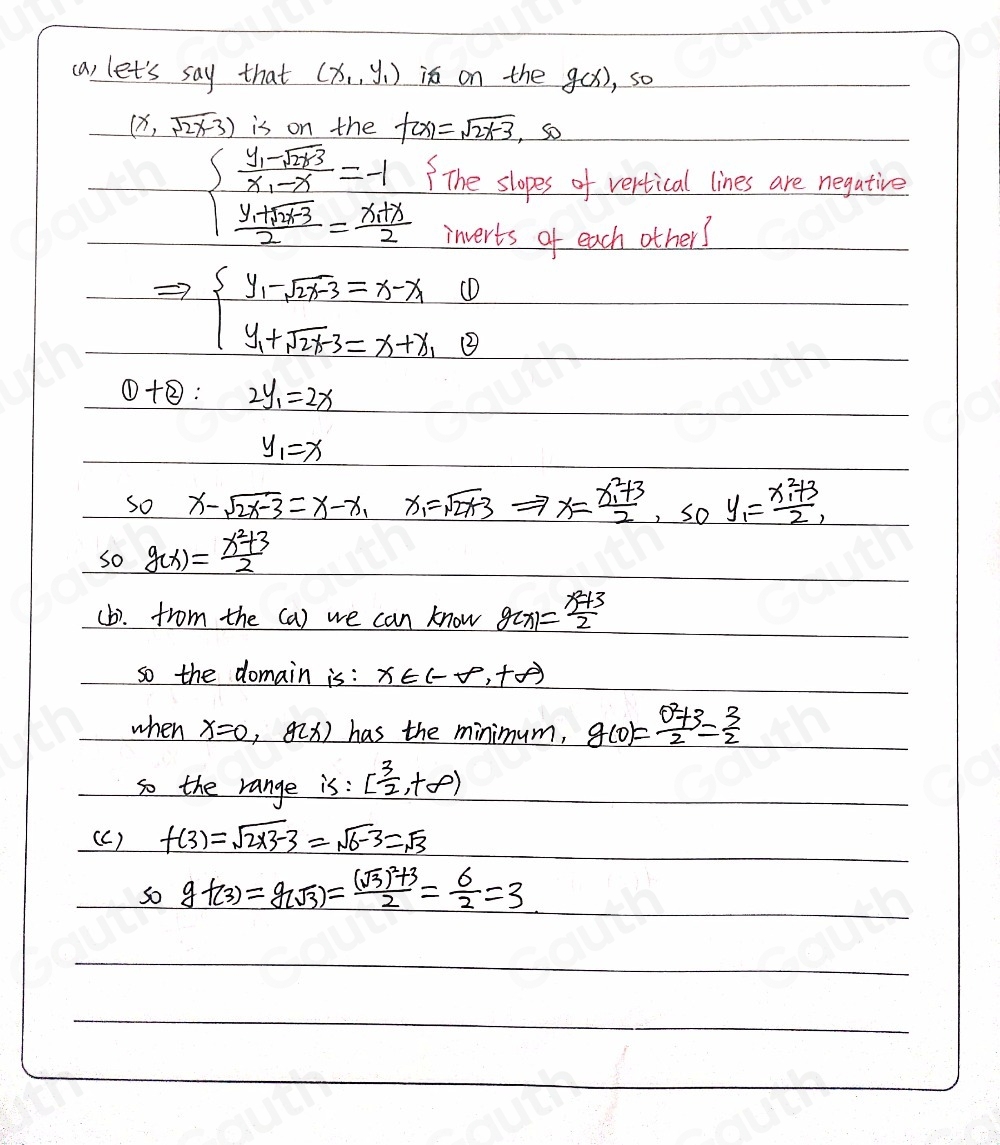 (a) let's say that (x₁, y₁) is on the g(x), so
(x, √2x-3) is on the f(x)=√2x-3, so
{ (y₁-√2x-3)/(x₁-x) = -1 {The slopes of vertical lines are negative
(y₁+√2x-3)/2 = (x₁+x)/2 inverts of each other}
⇒ { y₁-√2x-3 = x-x₁ ①
y₁+√2x-3 = x+x₁ ②
①+②: 2y₁=2x
y₁=x
so x-√2x-3=x-x₁ x₁=√2x-3 ⇒ x=(x₁²+3)/2, so y₁=(x₁²+3)/2,
so g(x)=(x²+3)/2
(b). from the (a) we can know g(x)=(x²+3)/2
so the domain is: x∈(-∞,+∞)
when x=0, g(x) has the minimum, g(0)=(0²+3)/2=3/2
so the range is: [3/2,+∞)
(c) f(3)=√2×3-3 = √6-3=√3
so g f(3)=g(√3)=((√3)²+3)/2=6/2=3